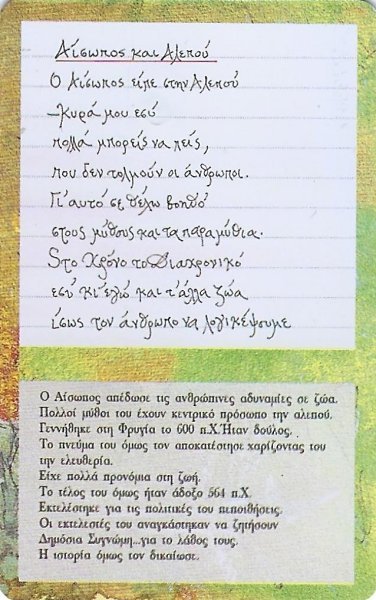 Αίσωπος και Αλεπού
Ο Αίσωπος είπε στην Αλεπού
–Κυρά μου εσύ
πολλά μπορείς να πεις,
που δεν τολμούν οι άνθρωποι.
Γι' αυτό σε θέλω βοηθό
στους μύθους και τα παραμύθια.
Στο Χρόνο το Διαχρονικό
εσύ κι' εγώ και τ' άλλα ζώα
ίσως τον άνθρωπο να λογικέψουμε
Ο Αίσωπος απέδωσε τις ανθρώπινες αδυναμίες σε ζώα.
Πολλοί μύθοι του έχουν κεντρικό πρόσωπο την αλεπού.
Γεννήθηκε στη Φρυγία το 600 π.Χ. Ήταν δούλος.
Το πνεύμα του όμως τον αποκατέστησε χαρίζοντας του
την ελευθερία.
Είχε πολλά προνόμια στη ζωή.
Το τέλος του όμως ήταν άδοξο 564 π.Χ.
Εκτελέστηκε για τις πολιτικές του πεποιθήσεις.
Οι εκτελεστές του αναγκάστηκαν να ζητήσουν
Δημόσια Συγνώμη...για το λάθος τους.
Η ιστορία όμως τον δικαίωσε.